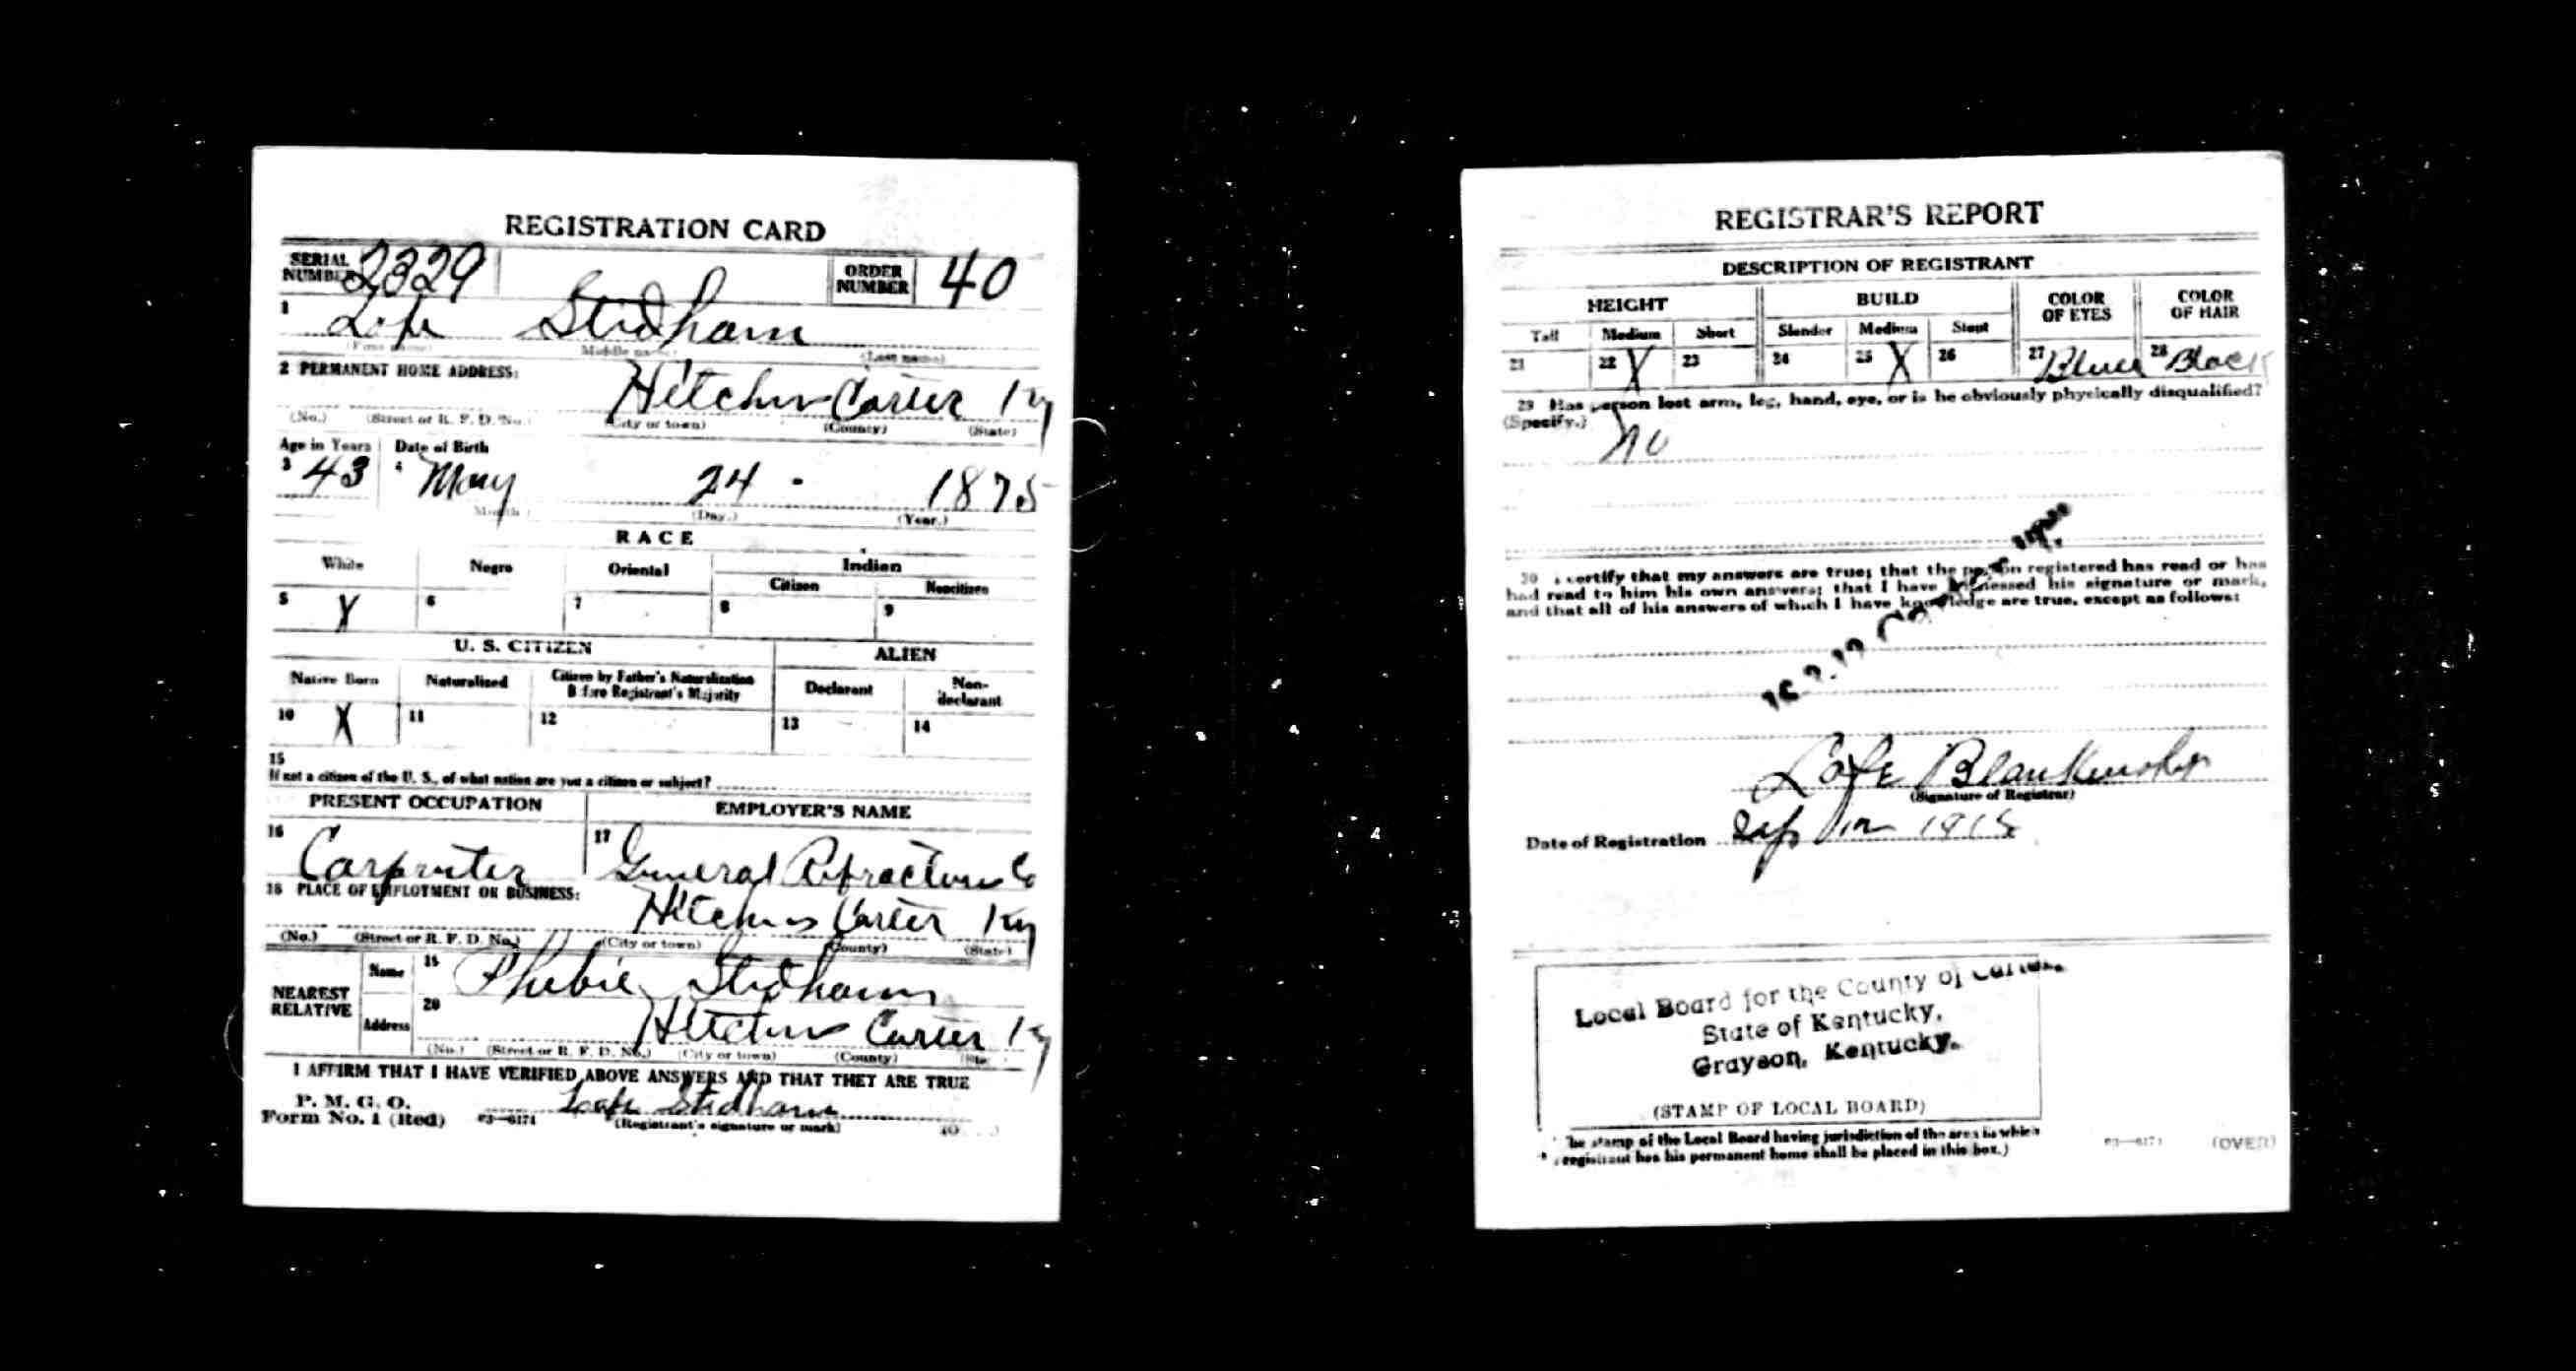 REGISTRATION CARD
SERIAL NUMBER 2329
ORDER NUMBER 40
1 Lafe Stidham
(First name) (Middle name) (Last name)
2 PERMANENT HOME ADDRESS:
Hitchins Carter Ky
(No.) (Street or R. F. D. No.) (City or town) (County) (State)
Age in Years Date of Birth
3 43 4 May 24 - 1875
(Month) (Day.) (Year.)
RACE
White Negro Oriental Indian
Citizen Noncitizen
5 X 6 7 8 9
U. S. CITIZEN ALIEN
Native Born Naturalized Citizen by Father's Naturalization Before Registrant's Majority Declarant Non-declarant
10 X 11 12 13 14
15
If not a citizen of the U. S., of what nation are you a citizen or subject?
PRESENT OCCUPATION EMPLOYER'S NAME
16 Carpenter 17 General Refractories Co
18 PLACE OF EMPLOYMENT OR BUSINESS:
Hitchins Carter Ky
(No.) (Street or R. F. D. No.) (City or town) (County) (State)
NEAREST RELATIVE
Name 19 Phebie Stidham
Address 20 Hitchins Carter Ky
(No.) (Street or R. F. D. No.) (City or town) (County) (State)
I AFFIRM THAT I HAVE VERIFIED ABOVE ANSWERS AND THAT THEY ARE TRUE
P. M. G. O.
Form No. 1 (Red) 03—6171 Lafe Stidham
(Registrant's signature or mark)
REGISTRAR'S REPORT
DESCRIPTION OF REGISTRANT
HEIGHT BUILD COLOR OF EYES COLOR OF HAIR
Tall Medium Short Slender Medium Stout
21 22 X 23 24 25 X 26 27 Blue 28 Black
29 Has person lost arm, leg, hand, eye, or is he obviously physically disqualified?
(Specify.) No
30 I certify that my answers are true; that the person registered has read or has
had read to him his own answers; that I have witnessed his signature or mark,
and that all of his answers of which I have knowledge are true, except as follows:
Lafe Blankenship
(Signature of Registrar)
Date of Registration Sep 12 1918
Local Board for the County of Carter,
State of Kentucky,
Grayson, Kentucky.
(STAMP OF LOCAL BOARD)
The stamp of the Local Board having jurisdiction of the area in which
registrant has his permanent home shall be placed in this box.)
03—6171 (OVER)